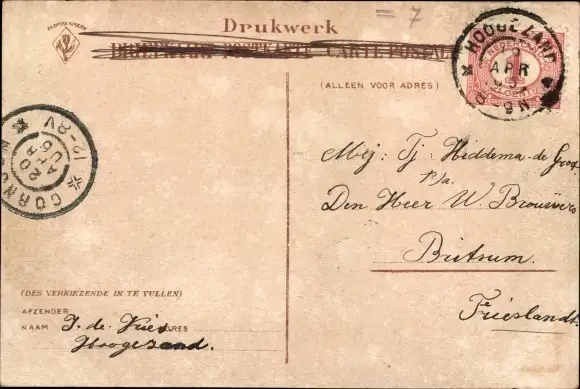 = 7
Drukwerk
BRIEFKAART POSTKARTE CARTE POSTALE
(ALLEEN VOOR ADRES)
HOOGEZAND
APR
05
8-9N
1
CORNJUM
20
APR
05
12-8V
Mej: Tj: Hiddema-de Groot
p/a.
Den Heer W. Brouwers
Britsum.
Friesland.
(DES VERKIEZENDE IN TE VULLEN)
AFZENDER
NAAM J. de Vries. ADRES
Hoogezand.